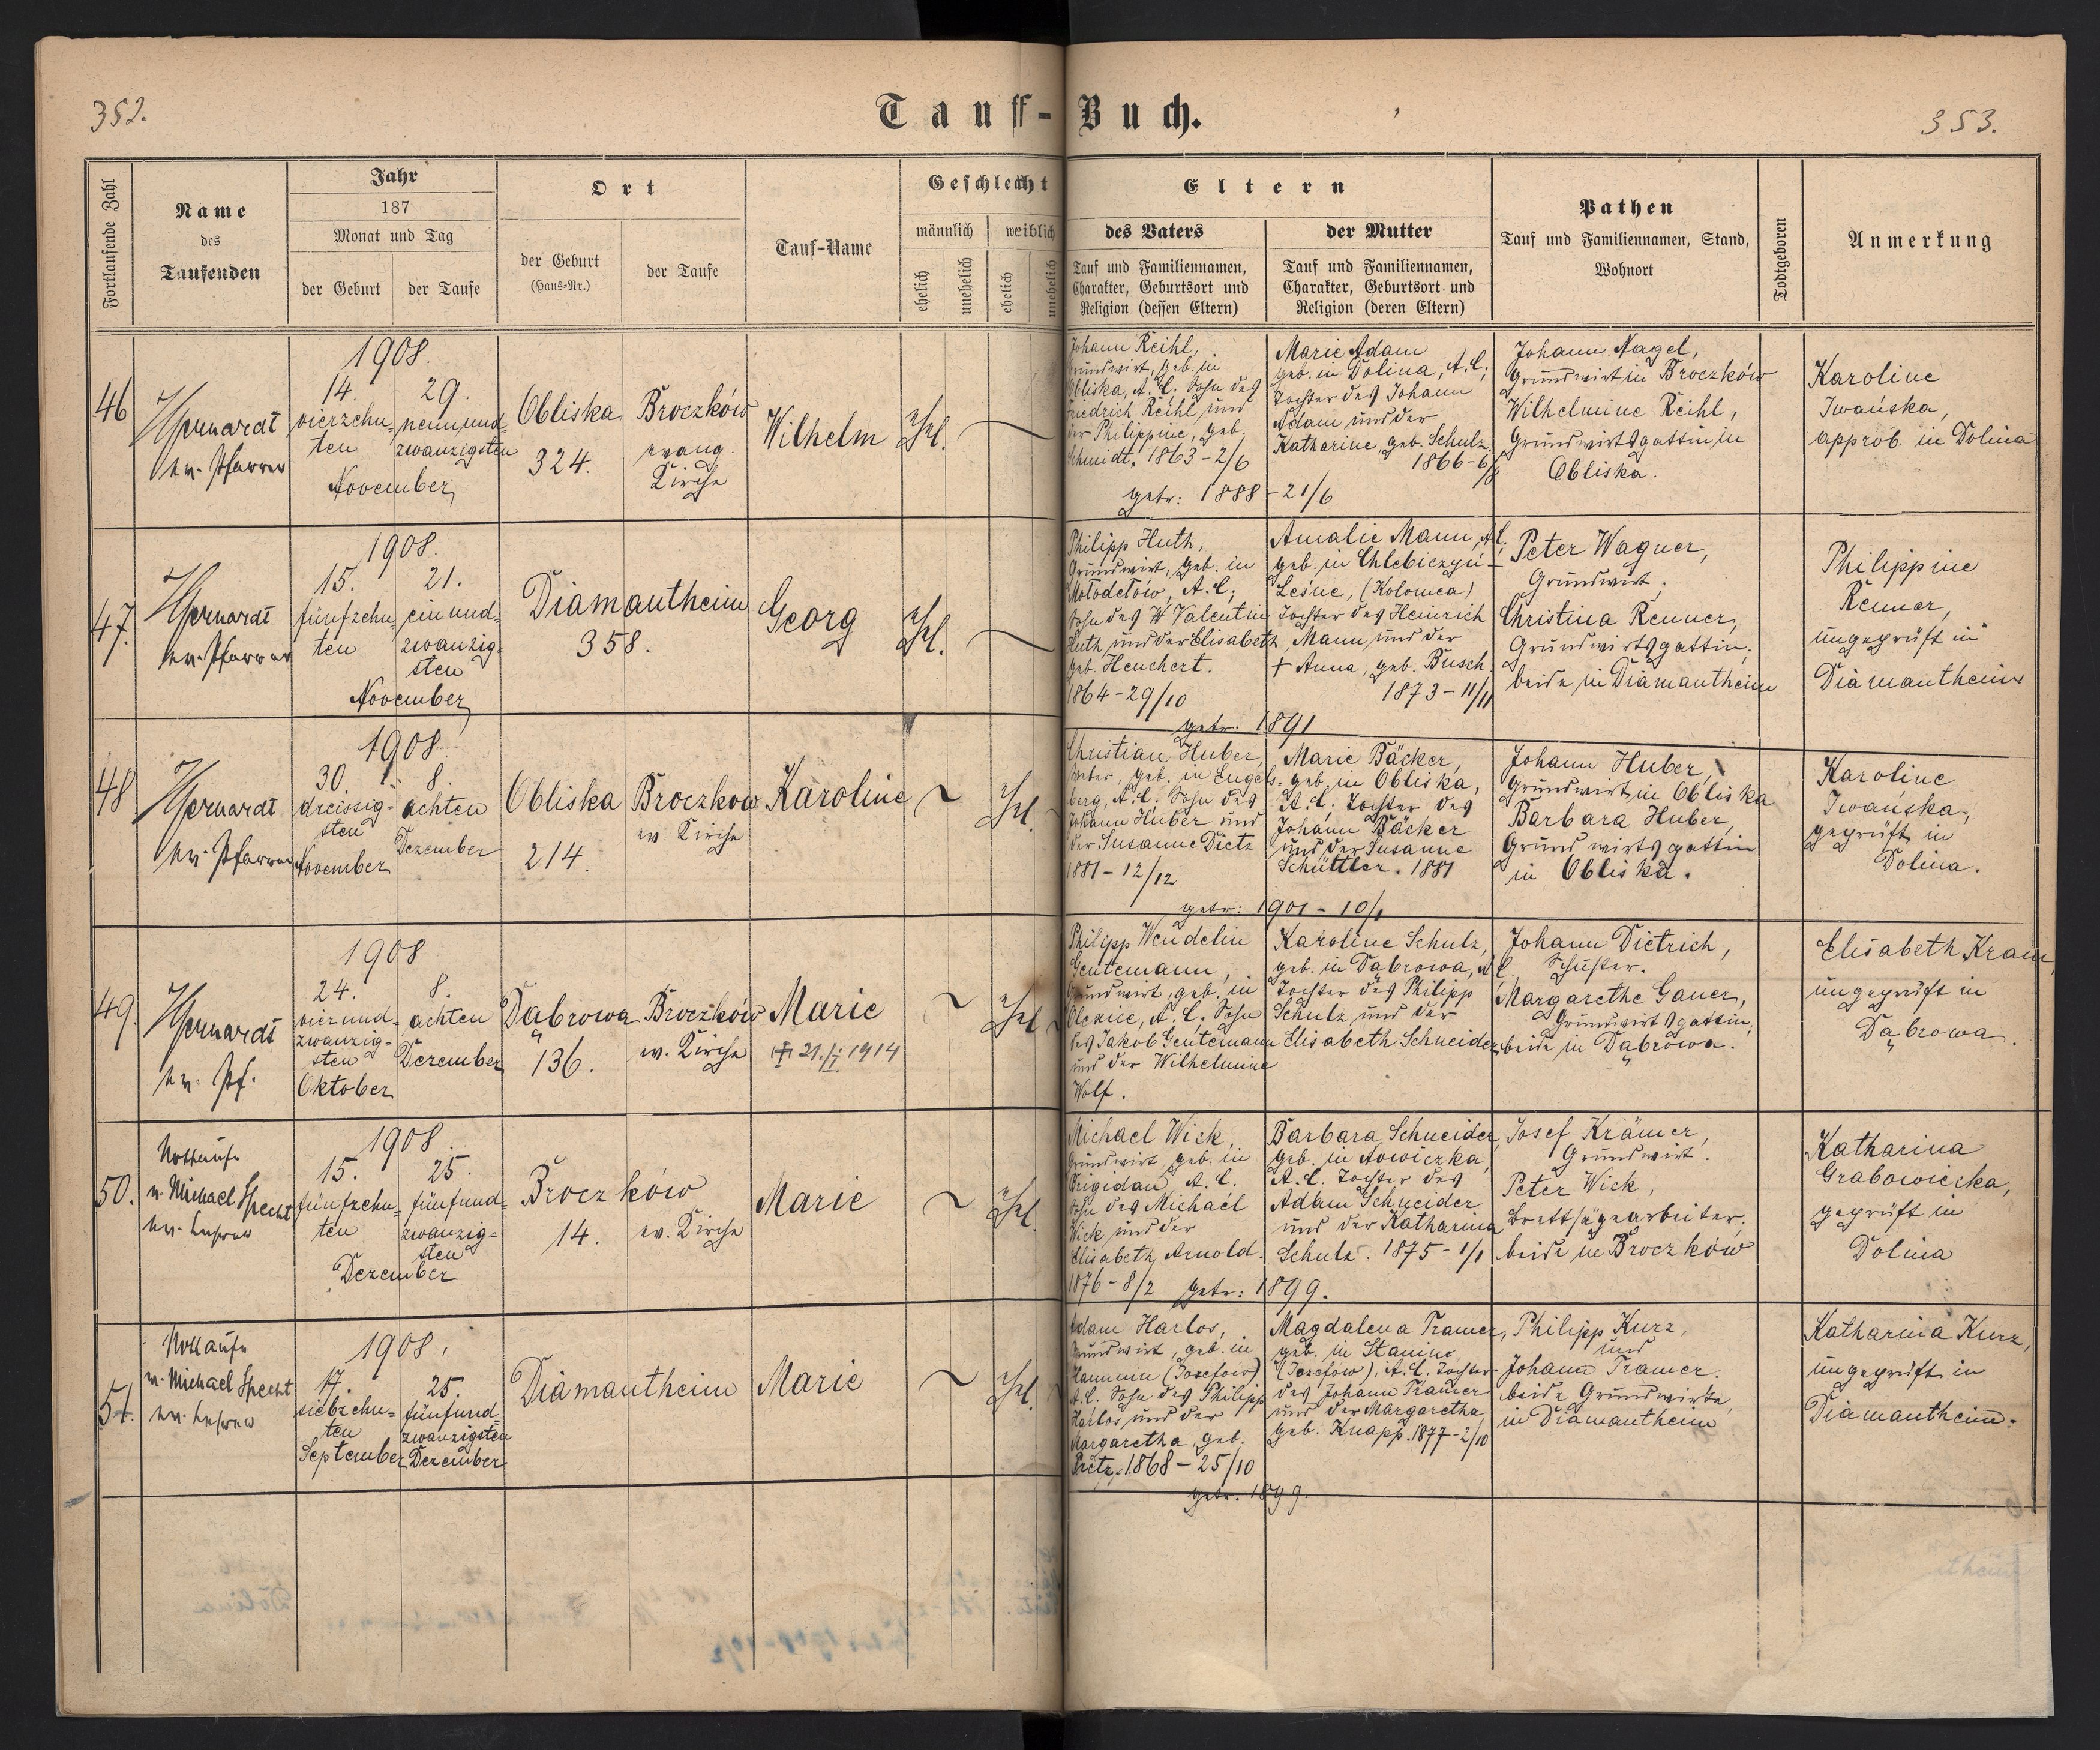 352.
Tauff-Buch.
353.
Fortlaufende Zahl
Name
des
Taufenden
Jahr
187
Monat und Tag
der Geburt
der Taufe
Ort
der Geburt
(Haus-Nr.)
der Taufe
Tauf-Name
Geschlecht
männlich
weiblich
ehelich
unehelich
ehelich
unehelich
Eltern
des Vaters
Tauf und Familiennamen,
Charakter, Geburtsort und
Religion (dessen Eltern)
der Mutter
Tauf und Familiennamen,
Charakter, Geburtsort und
Religion (deren Eltern)
Pathen
Tauf und Familiennamen, Stand,
Wohnort
Todtgeboren
Anmerkung
46
ev. Pfarrer
1908.
14.
vierzehn-
ten
29.
neunund-
zwanzigsten
November
Obliska
324.
Broczków
evang.
Kirche
Wilhelm
Ehel.
Johann Reihl,
Grundwirt, geb. in
Obliska, A.C.; Sohn des
Friedrich Reihl und
der Philippine, geb.
Schmidt. 1863-2/6
Marie Adam
geb. in Dolina, A.C.;
Tochter des Johann
Adam und der
Katharine, geb. Schulz.
1866-6/8
getr: 1888-21/6
Johann Nagel,
Grundwirt in Broczków
Wilhelmine Reihl,
Grundwirtsgattin in
Obliska.
Karoline
Iwańska,
approb. in Dolina
47.
ev. Pfarrer
1908.
15.
fünfzehn-
ten
21.
einund-
zwanzig-
sten
November
Diamantheim
358.
Georg
Ehel.
Philipp Huth,
Grundwirt, geb. in
Mołodetów, A.C.;
Sohn des Valentin
Huth und der Elisabeth
geb. Heuchert.
1864-29/10
Amalie Mann, A.C.
geb. in Chlebiczyn-
Leśne, (Kolomea)
Tochter des Heinrich
Mann, und der
+ Anna, geb. Busch
1873-11/11
getr: 1891
Peter Wagner,
Grundwirt.
Christina Renner,
Grundwirtsgattin;
beide in Diamantheim
Philippine
Renner,
ungeprüft in
Diamantheim
48
ev. Pfarrer
1908.
30.
dreissig-
sten
November
8.
achten
Dezember
Obliska
214.
Broczków
ev. Kirche
Karoline
Ehel.
Christian Huber,
geb. in Engels-
berg, A.C. Sohn des
Johann Huber und
der Susanne Dietz
1881-12/12
Marie Bäcker,
geb. in Obliska,
A.C.; Tochter des
Johann Bäcker
und der Susanne
Schüttler. 1881
getr: 1901-10/1
Johann Huber,
Grundwirt in Obliska
Barbara Huber,
Grundwirtsgattin
in Obliska.
Karoline
Iwańska,
geprüft in
Dolina.
49.
ev. Pf.
1908
24.
vierund-
zwanzig-
sten
Oktober
8.
achten
Dezember
Dąbrowa
136.
Broczków
ev. Kirche
Marie
21./I 1914
Ehel.
Philipp Wendelin
Gentemann,
Grundwirt, geb. in
A.C. Sohn
des Jakob Gentemann
und der Wilhelmine
Wolf.
Karoline Schulz,
geb. in Dąbrowa, A.C.
Tochter des Philipp
Schulz und der
Elisabeth Schneider
Johann Dietrich,
Schuster.
Margarethe Gauer,
Grundwirtsgattin;
beide in Dąbrowa.
Elisabeth Kram,
ungeprüft in
Dąbrowa.
50.
Nottaufe
v. Michael Specht
ev. Lehrer
1908.
15.
fünfzehn-
ten
25.
fünfund-
zwanzig-
sten
Dezember
Broczków
14.
ev. Kirche
Marie
Ehel.
Michael Wick,
Grundwirt geb. in
Brigidau, A.C.
Sohn des Michael
Wick und der
Elisabeth Arnold.
1876-8/2
Barbara Schneider,
geb. in Nowiczka,
A.C. Tochter des
Adam Schneider
und der Katharina
Schulz. 1875-1/1
getr: 1899.
Josef Krämer,
Grundwirt.
Peter Wick,
Brettsägearbeiter.
beide in Broczków
Katharina
Grabowiecka,
geprüft in
Dolina
51.
Nottaufe
v. Michael Specht
ev. Lehrer
1908.
17.
siebzehn-
ten
September
25.
fünfund-
zwanzigsten
Dezember
Diamantheim
Marie
Ehel.
Adam Harlos,
Grundwirt, geb. in
(Josefow)
A.C. Sohn des Philipp
Harlos und der
Margaretha geb.
1868-25/10
Magdalena Tramer,
geb. in Stanin
(Josefów), A.C. Tochter
des Johann Tramer
und der Margaretha
geb. Knapp. 1877-2/10
getr. 1899.
Philipp Kurz,
und
Johann Tramer.
beide Grundwirte,
in Diamantheim
Katharina Kurz,
ungeprüft in
Diamantheim.